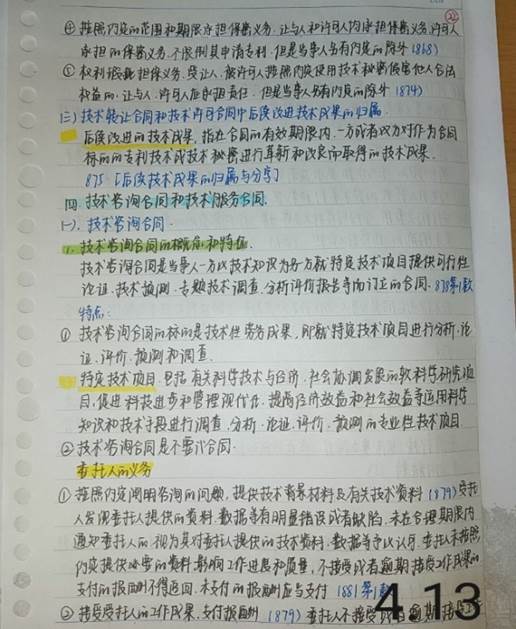 22
④ 按照约定的范围和期限承担保密义务。让与人和许可人均承担保密义务,许可人
承担的保密义务,不限制其申请专利,但是当事人另有约定的除外 (868)
⑤ 权利瑕疵担保义务。受让人、被许可人按照约定使用技术秘密侵害他人合法
权益的,让与人、许可人应承担责任,但是当事人另有约定的除外 (874)
(三) 技术转让合同和技术许可合同中后续改进技术成果的归属
后续改进的技术成果,指在合同的有效期限内,一方或者双方对作为合同
标的的专利技术或技术秘密进行革新和改良而取得的技术成果。
875 [后续技术成果的归属与分享]
四、技术咨询合同和技术服务合同
(一)、技术咨询合同
1、技术咨询合同的概念和特征
技术咨询合同是当事人一方以技术知识为另一方就特定技术项目提供可行性
论证、技术预测、专题技术调查、分析评价报告等而订立的合同。878第1款
特点:
① 技术咨询合同的标的是技术性劳务成果,即就特定技术项目进行分析、论
证、评价、预测和调查。
特定技术项目,包括有关科学技术与经济、社会协调发展的软科学研究项
目,促进科技进步和管理现代化、提高经济效益和社会效益等运用科学
知识和技术手段进行调查、分析、论证、评价、预测的专业性技术项目
② 技术咨询合同是不要式合同。
委托人的义务
① 按照约定阐明咨询的问题,提供技术背景材料及有关技术资料 (879) 受托
人发现委托人提供的资料、数据等有明显错误或者缺陷,未在合理期限内
通知委托人的,视为其对委托人提供的技术资料、数据等予以认可。委托人未按照
约定提供必要的资料,影响工作进度和质量,不接受或者逾期接受工作成果的
支付的报酬不得追回,未支付的报酬应当支付 (881第1款)
② 接受受托人的工作成果,支付报酬 (879) 委托人不接受或者逾期接受
4.13